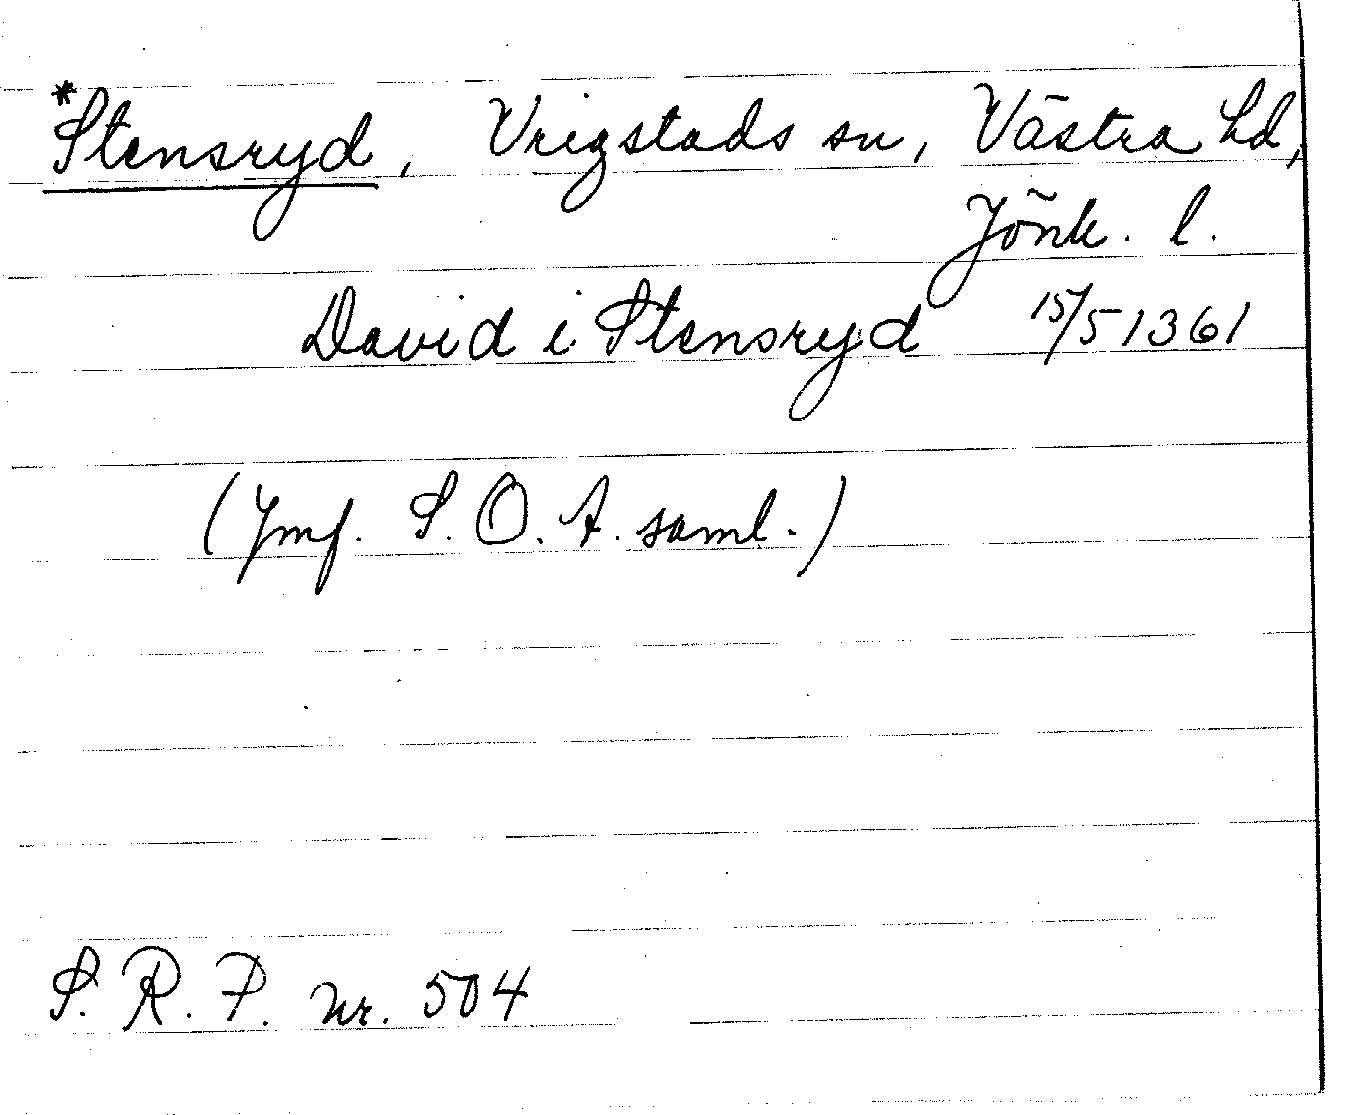 *Stensryd, Vrigstads sn, Västra hd,
Jönk. l.
David i Stensryd 15/5 1361
(Jmf. S. O. A. saml.)
S. R. P. nr. 504